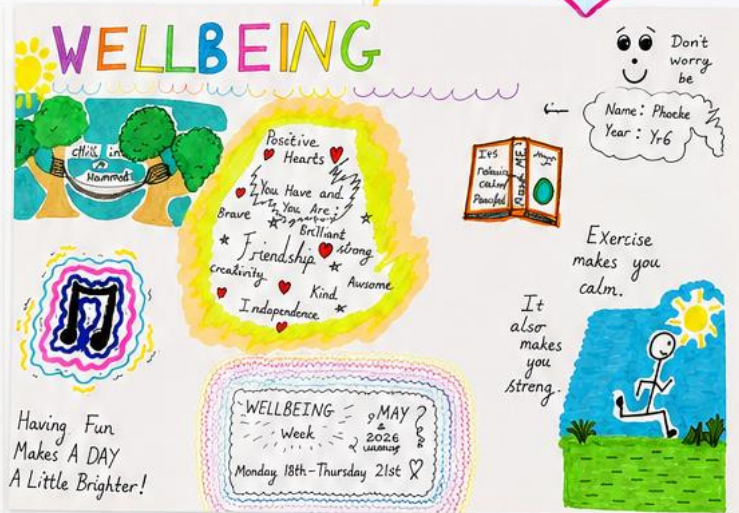 WELLBEING
Don't
worry
be
Name: Phoeke
Year: Yr6
Chill in
a
Hammod
Positive
Hearts
You Have and
You Are:
Brave
Brilliant
Friendship
strong
creativity
Kind
Awsome
Independence
Its
calm
Peaceful
READ ME!
Exercise
makes you
calm.
It
also
makes
you
strong.
Having Fun
Makes A DAY
A Little Brighter!
WELLBEING
Week
MAY
2026
Monday 18th-Thursday 21st